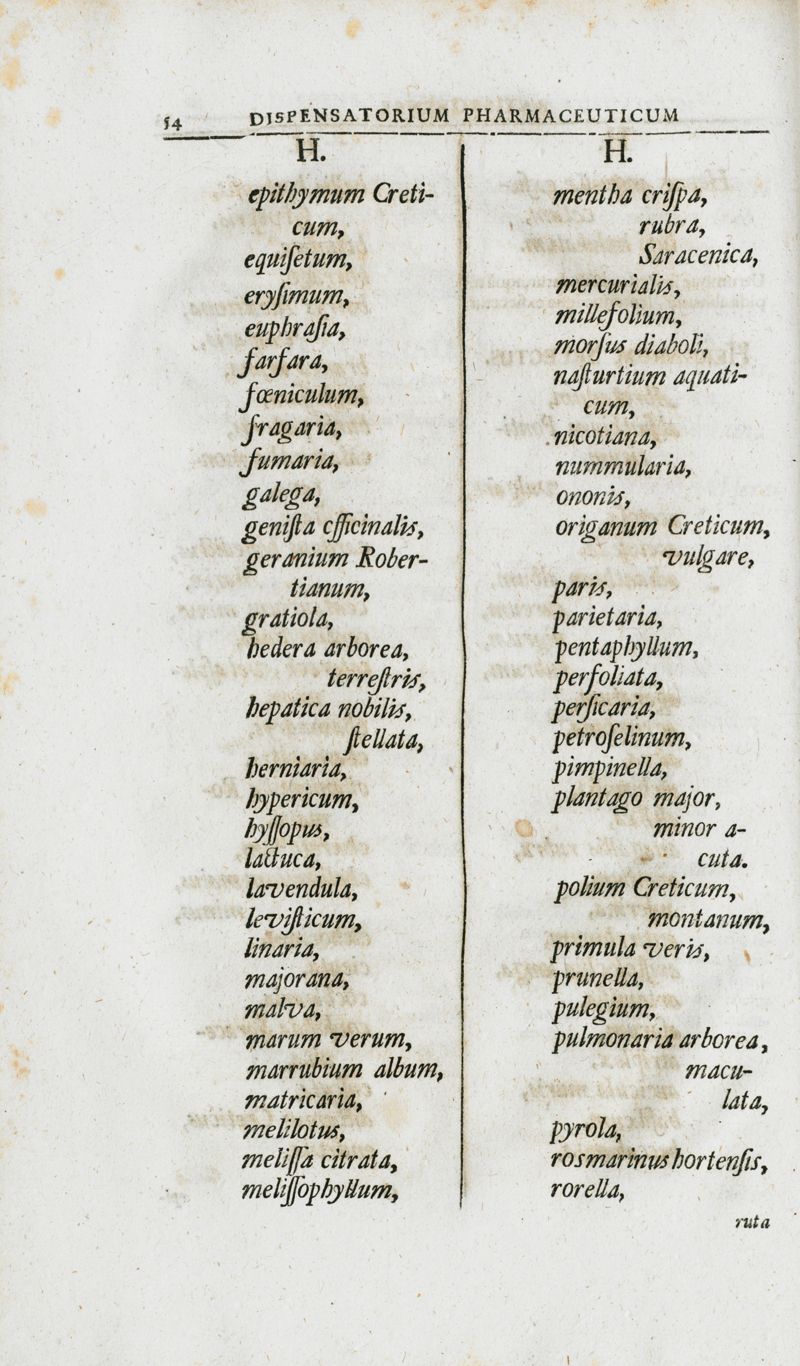 54 DISPENSATORIUM PHARMACEUTICUM
H.
epithymum Creti-
cum,
equiſetum,
eryſimum,
euphraſia,
farfara,
fœniculum,
fragaria,
fumaria,
galega,
geniſta officinalis,
geranium Rober-
tianum,
gratiola,
hedera arborea,
terreſtris,
hepatica nobilis,
ſtellata,
herniaria,
hypericum,
hyſſopus,
lactuca,
lavendula,
leviſticum,
linaria,
majorana,
malva,
marum verum,
marrubium album,
matricaria,
melilotus,
meliſſa citrata,
meliſſophyllum,
H.
mentha criſpa,
rubra,
Saracenica,
mercurialis,
millefolium,
morſus diaboli,
naſturtium aquati-
cum,
nicotiana,
nummularia,
ononis,
origanum Creticum,
vulgare,
paris,
parietaria,
pentaphyllum,
perfoliata,
perſicaria,
petroſelinum,
pimpinella,
plantago major,
minor a-
cuta.
polium Creticum,
montanum,
primula veris,
prunella,
pulegium,
pulmonaria arborea,
macu-
lata,
pyrola,
rosmarinus hortenſis,
rorella,
ruta